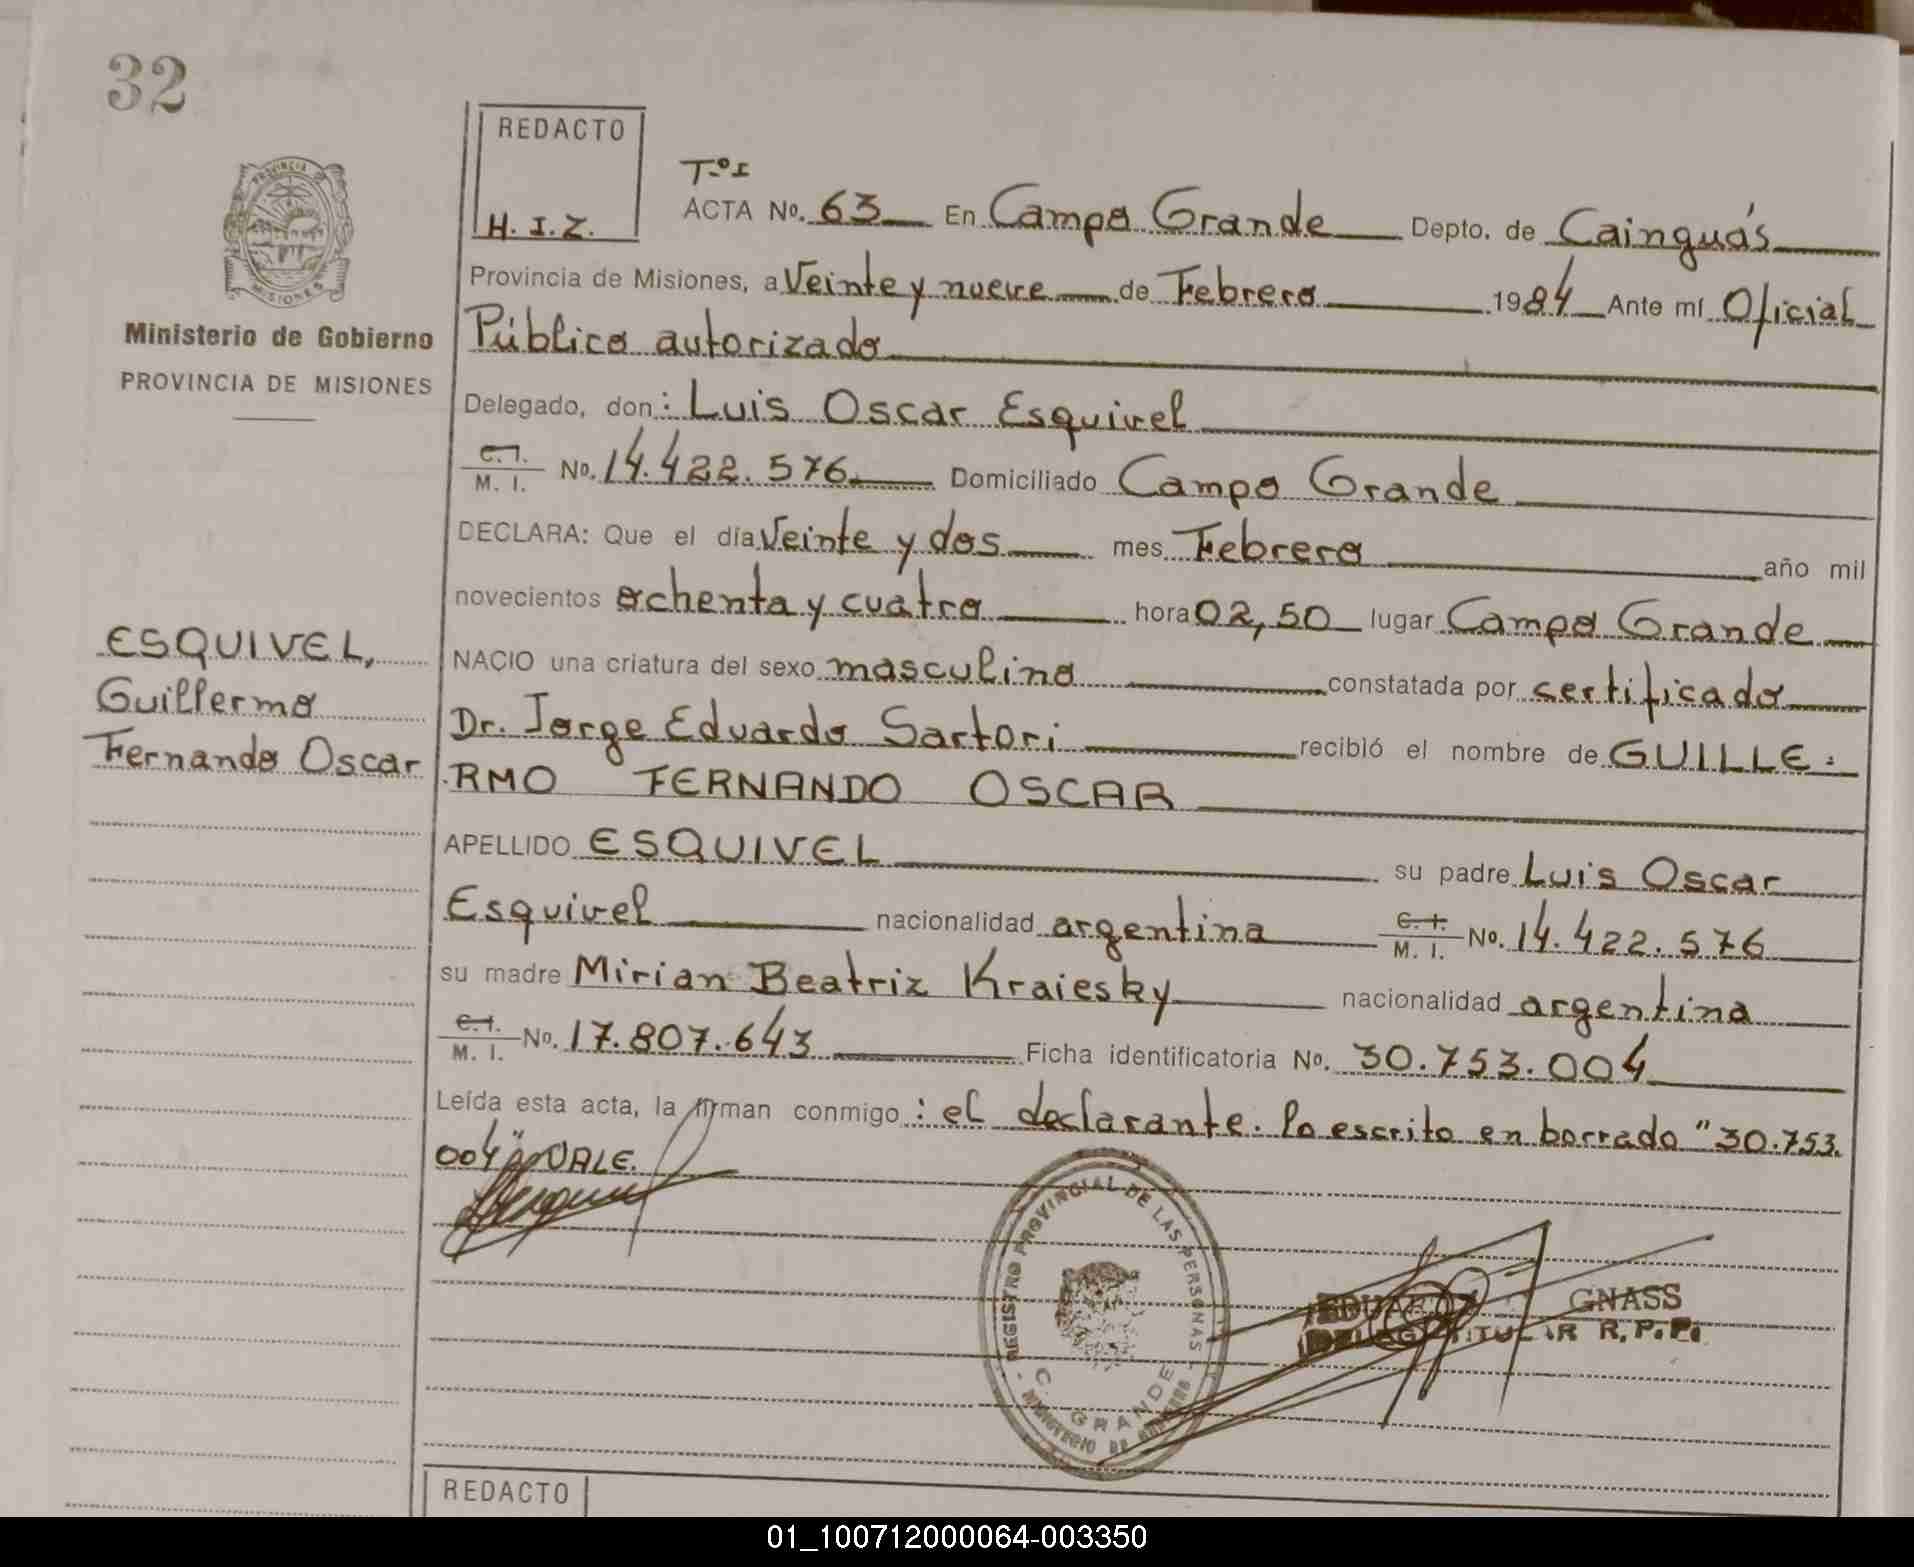 32
REDACTO
H. I. Z.
PROVINCIA
MISIONES
Ministerio de Gobierno
PROVINCIA DE MISIONES
Tº I
ACTA No. 63 En Campo Grande Depto. de Cainguás
Provincia de Misiones, a Veinte y nueve de Febrero 1984 Ante mí Oficial
Público autorizado
Delegado, don: Luis Oscar Esquivel
C.I. M. I. No. 14.422.576 Domiciliado Campo Grande
DECLARA: Que el día Veinte y dos mes Febrero año mil
novecientos ochenta y cuatro hora 02,50 lugar Campo Grande
ESQUIVEL,
Guillermo
Fernando Oscar
NACIO una criatura del sexo masculino constatada por certificado
Dr. Jorge Eduardo Sartori recibió el nombre de GUILLE-
RMO FERNANDO OSCAR
APELLIDO ESQUIVEL su padre Luis Oscar
Esquivel nacionalidad argentina C. I. M. I. No. 14.422.576
su madre Mirian Beatriz Kraiesky nacionalidad argentina
C. I. M. I. No. 17.807.643 Ficha identificatoria No. 30.753.004
Leída esta acta, la firman conmigo: el declarante. lo escrito en borrado "30.753.
004" VALE.
REGISTRO PROVINCIAL DE LAS PERSONAS
C. GRANDE
GNASS
TITULAR R.P.P.
REDACTO
01_100712000064-003350